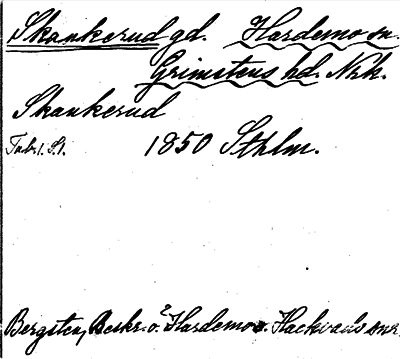 Skankerud gd. Hardemo sn.
Grimstens hd. Nrk.
Skankerud
Tab. 1. S. 1. 1850 Sthlm.
Bergsten, Beskr. ö. Hardemo o. Hackvads snr.